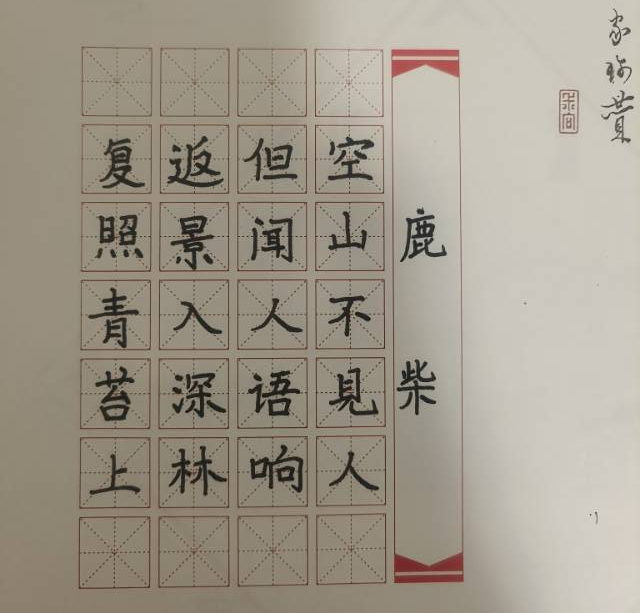 鹿柴
空山不見人
但闻人语响
返景入深林
复照青苔上